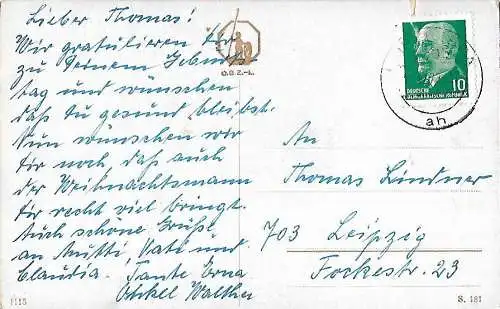 Lieber Thomas!
Wir gratulieren dir
zu Deinem Geburts
tag und wünschen
daß du gesund bleibst.
Nun wünschen wir
Dir noch, daß auch
der Weihnachtsmann
Dir recht viel bringt.
Auch schöne Grüße
an Mutti, Vati und
Claudia. Tante Erna
Onkel Walther
1115
10
DEUTSCHE
DEMOKRATISCHE REPUBLIK
ah
An
Thomas Lindner
703 Leipzig
Fockestr. 23
S. 181